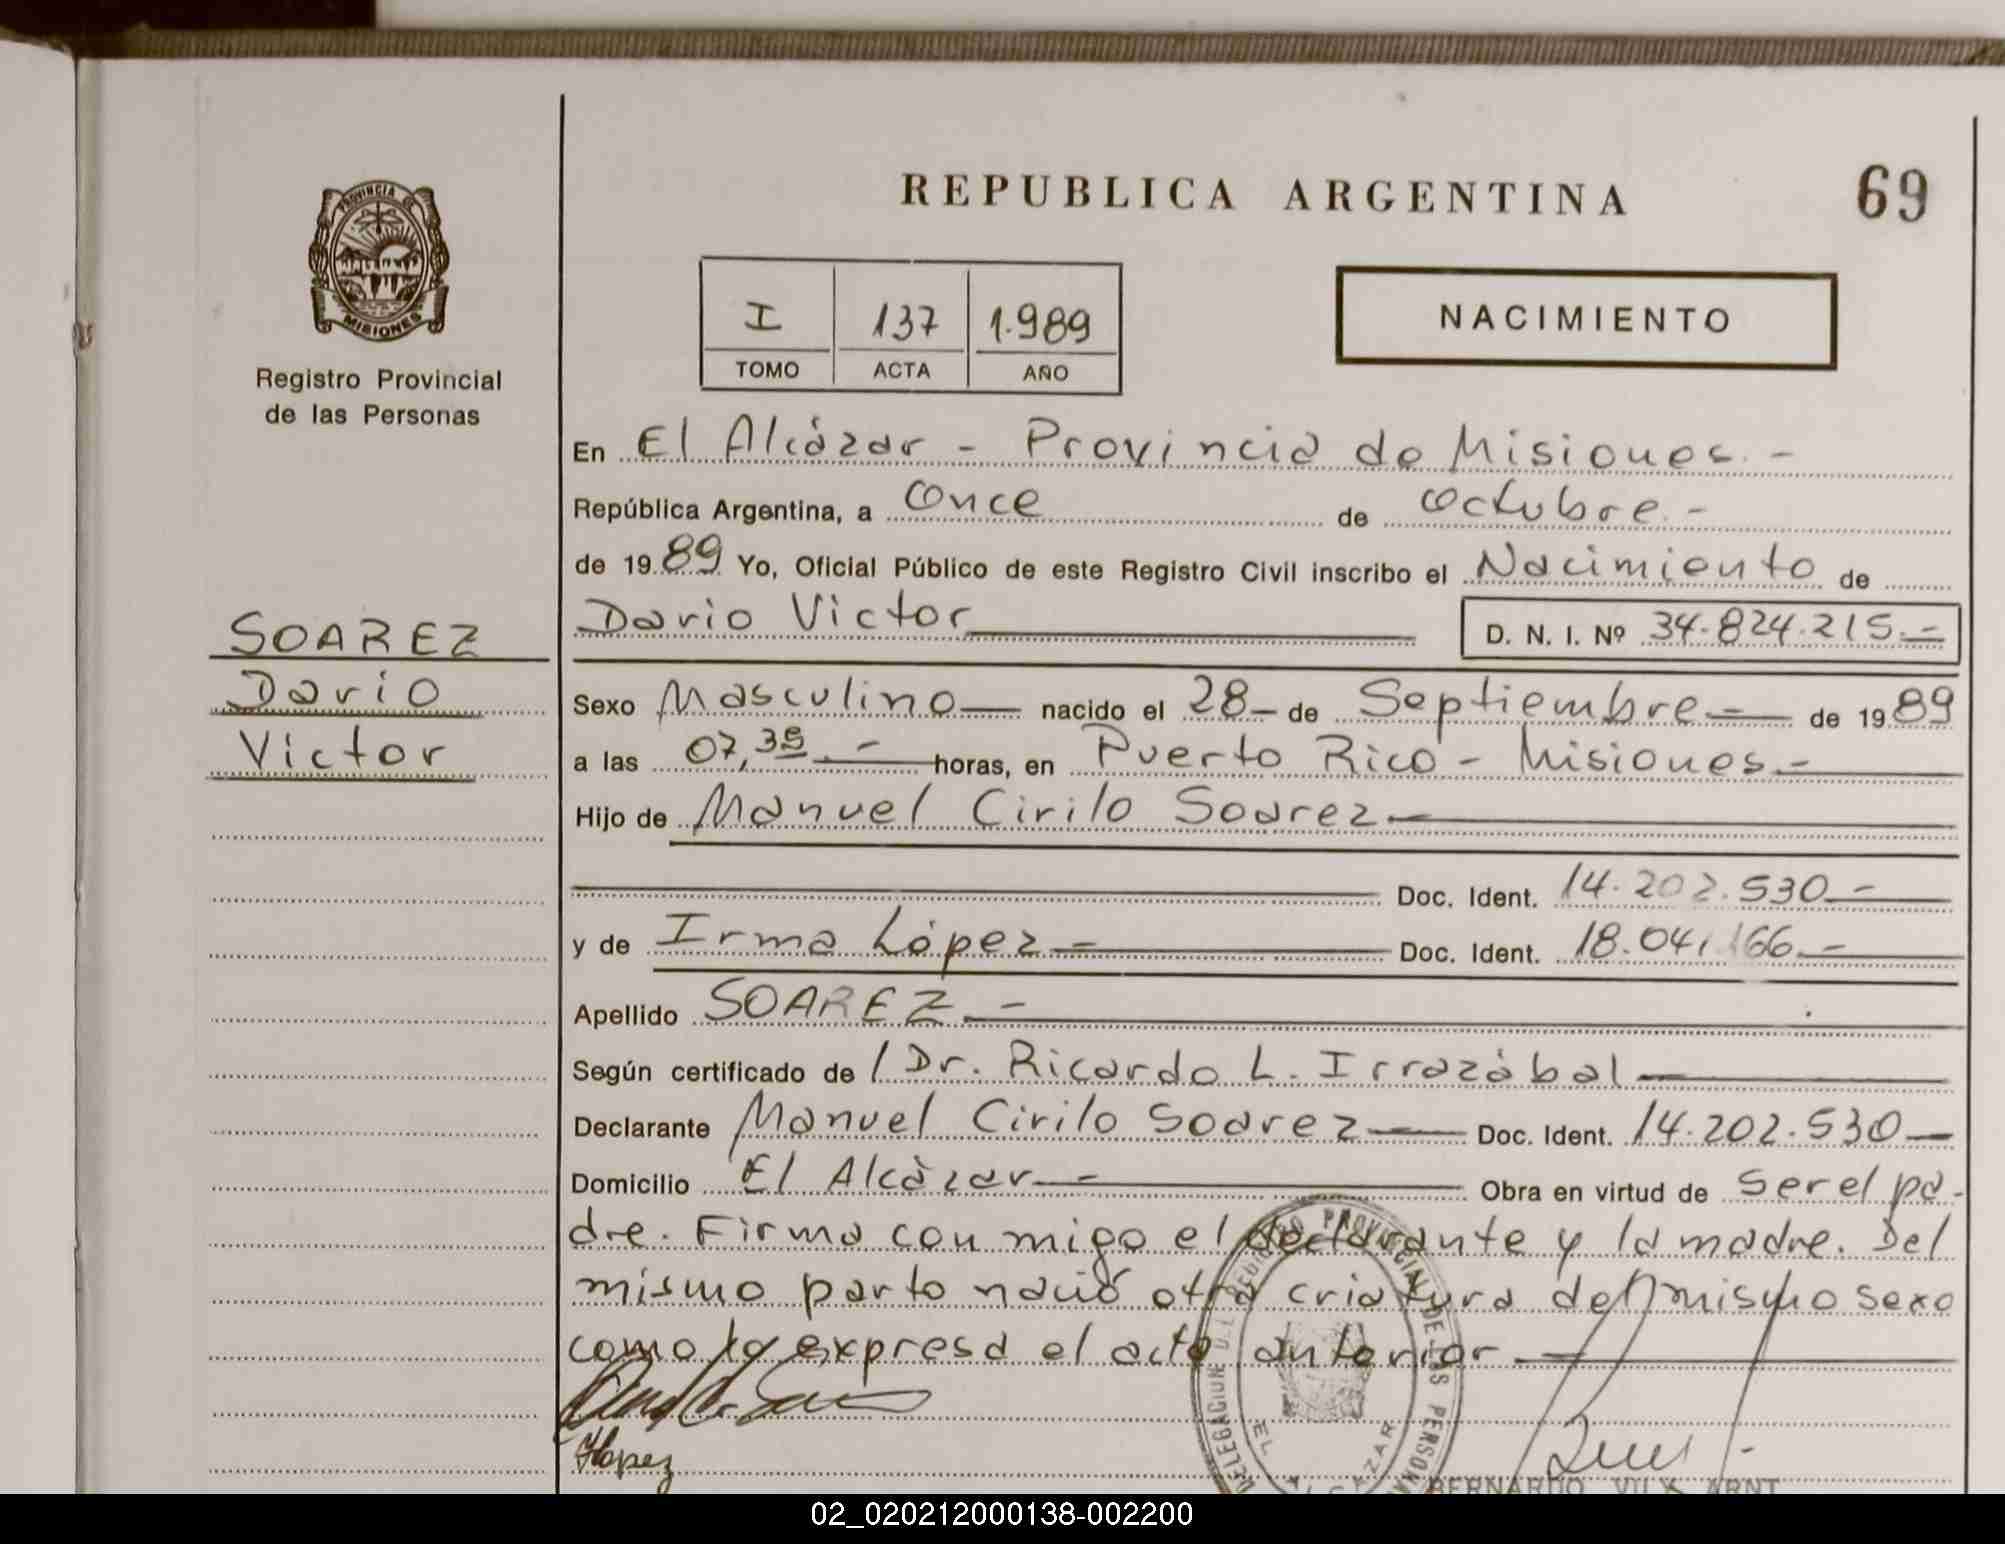 PROVINCIA DE
MISIONES
Registro Provincial
de las Personas
SOAREZ
Dario
Victor
REPUBLICA ARGENTINA
69
I 137 1.989
TOMO ACTA AÑO
NACIMIENTO
En El Alcázar - Provincia de Misiones.-
República Argentina, a once de octubre.-
de 19 89 Yo, Oficial Público de este Registro Civil inscribo el Nacimiento de
Dario Victor D. N. I. Nº 34.824.215.-
Sexo Masculino nacido el 28 de Septiembre de 19 89
a las 07,35.- horas, en Puerto Rico - Misiones.-
Hijo de Manuel Cirilo Soarez
Doc. Ident. 14.202.530-
y de Irma López Doc. Ident. 18.041.166-
Apellido SOAREZ.-
Según certificado de Dr. Ricardo L. Irrazábal
Declarante Manuel Cirilo Soarez Doc. Ident. 14.202.530
Domicilio El Alcázar Obra en virtud de ser el pa-
dre. Firma con migo el declarante y la madre. Del
mismo parto nació otra criatura del mismo sexo
como lo expresa el acta anterior
ILopez
DELEGACION DEL REGISTRO PROVINCIAL DE LAS PERSONAS
EL ALCAZAR
BERNARDO
02_020212000138-002200